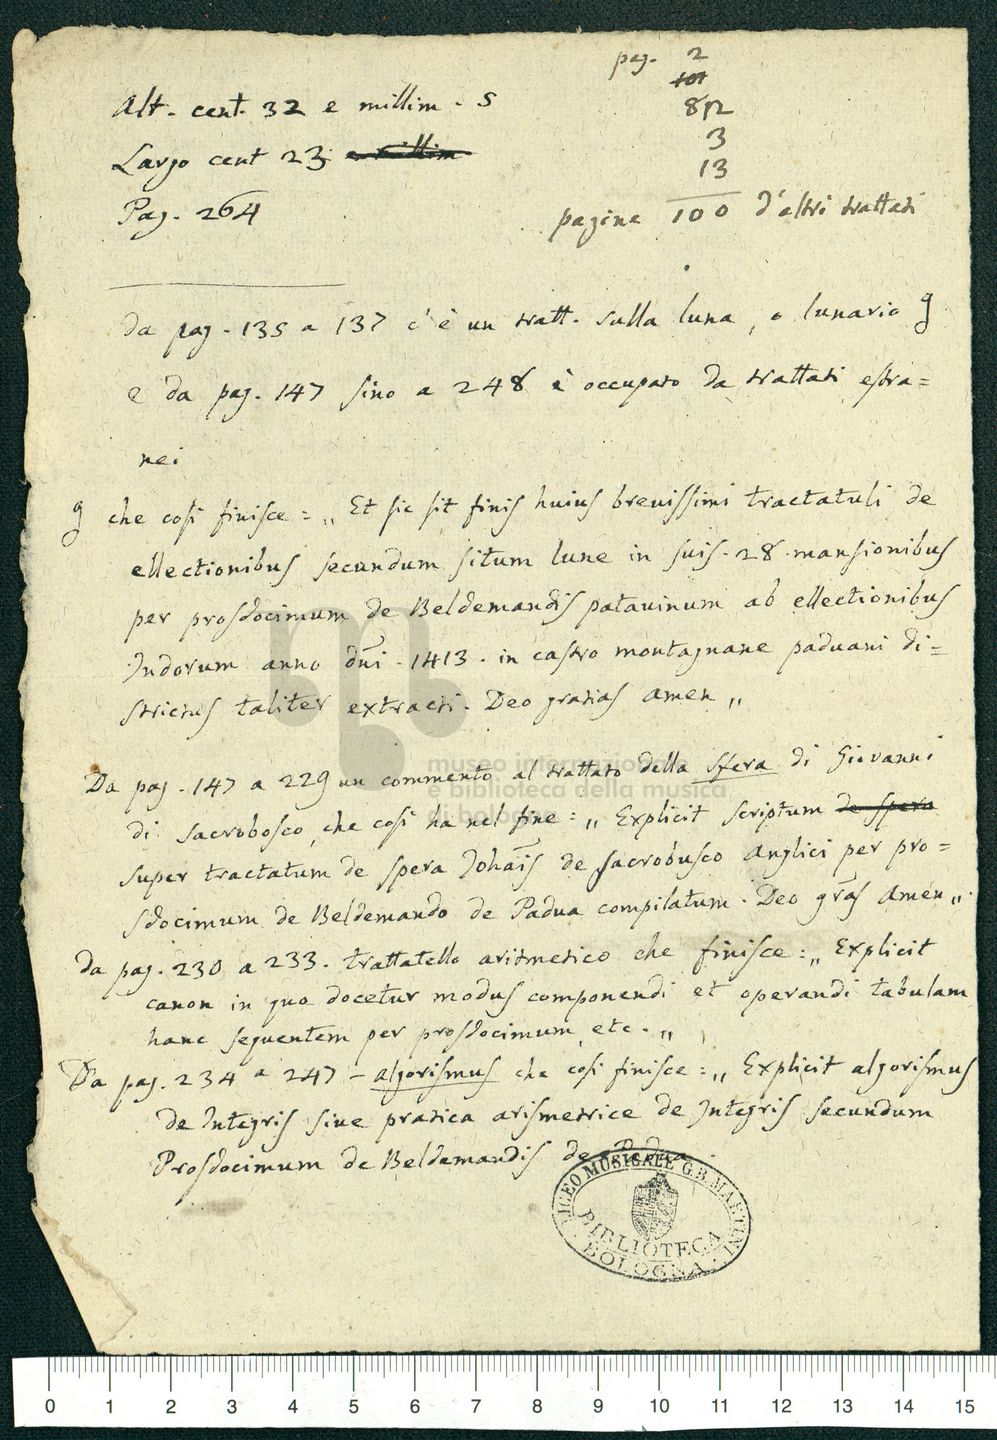 pag. 2
101
82
3
13
pagine 100 d'altri trattati
Alt. cent. 32 e millim. 5
Largo cent 23 e millim
Pag. 264
da pag. 135 a 137 c'è un tratt. sulla luna, o lunario g
e da pag. 147 sino a 248 è occupato da trattati estra=
nei
g che così finisce = „ Et sic sit finis huius brevissimi tractatuli de
ellectionibus secundum situm lune in suis. 28. mansionibus
per prosdocimum de Beldemandis patavinum ab ellectionibus
Indorum anno dni. 1413. in castro montagnane paduani di=
strictus taliter extracti. Deo gratias amen „
Da pag. 147 a 229 un commento al trattato della sfera di Giovanni
di sacrobosco, che così ha nel fine = „ Explicit scriptum de spera
super tractatum de spera Johais de sacrobusco anglici per pro=
sdocimum de Beldemando de Padua compilatum. Deo gras Amen „.
da pag. 230 a 233. trattatello aritmetico che finisce = „ Explicit
canon in quo docetur modus componendi et operandi tabulam
hanc sequentem per prosdocimum, etc. „
Da pag. 234 a 247 – algorismus che così finisce = „ Explicit algorismus
de Integris sive pratica arismetrice de Integris secundum
Prosdocimum de Beldemandis de Padua.
LICEO MUSICALE G.B. MARTINI
BIBLIOTECA
BOLOGNA
museo internazionale
e biblioteca della musica
di bologna
0 1 2 3 4 5 6 7 8 9 10 11 12 13 14 15